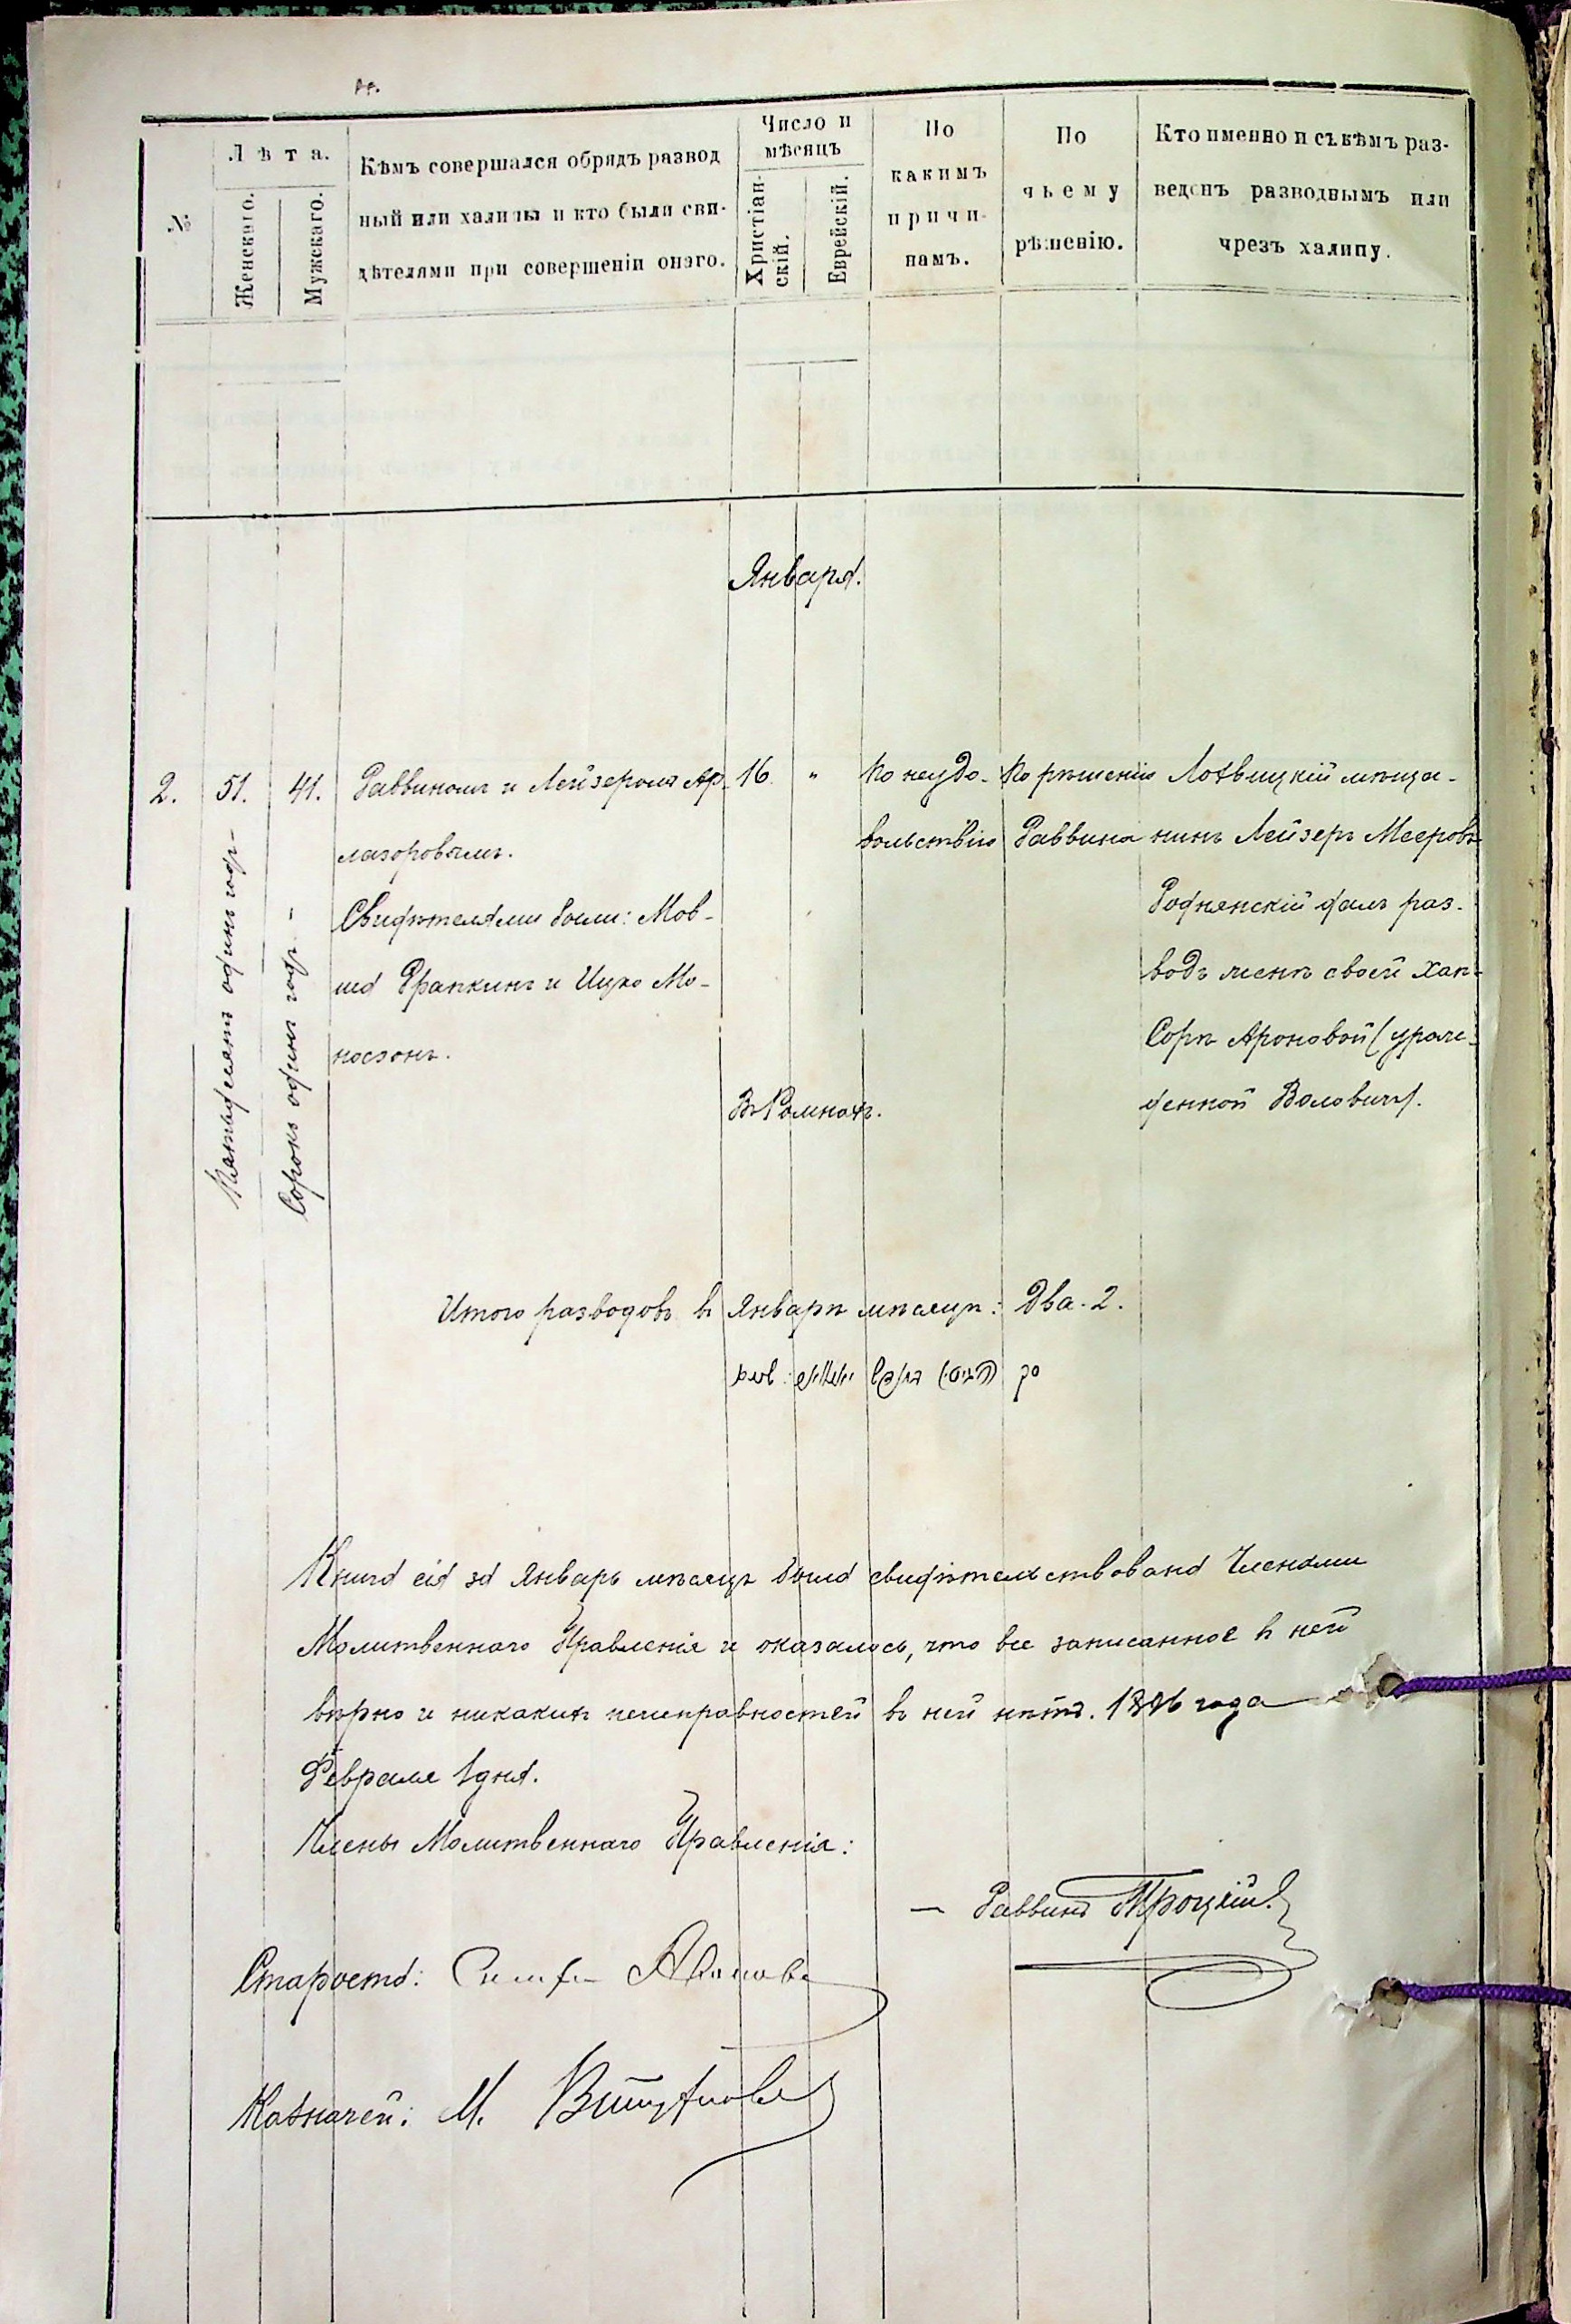 №
Лѣта.
Женскаго.
Мужскаго.
Кѣмъ совершался обрядъ развод
ный или халицы и кто были сви-
дѣтелями при совершеніи онаго.
Число и
мѣсяцъ
Христіан-
скій.
Еврейскій.
По
какимъ
причи-
намъ.
По
чьему
рѣшенію.
Кто именно и съ кѣмъ раз-
веденъ разводнымъ или
чрезъ халицу.
Января.
2.
51.
Пятьдесятъ одинъ годъ
41.
Сорокъ одинъ годъ
Раввиномъ и Лейзеромъ Ар-
лазоровымъ.
Свидѣтелями были: Мов-
ша Фрапкинъ и Ицко Мо-
носзонъ.
16
"
Въ Ромнахъ.
По неудо-
вольствію
По рѣшенію
Раввина
Лохвицкій мѣща-
нинъ Лейзеръ Мееровъ
Роднянскій далъ раз-
водъ женѣ своей Хаѣ-
Сорѣ Ароновой (урож-
денной Воловичъ).
Итого разводовъ въ Январѣ мѣсяцѣ: Два. 2.
Книга сія за Январь мѣсяцъ была свидѣтельствована Членами
Молитвеннаго Правленія и оказалось, что все записанное въ ней
вѣрно и никакихъ неисправностей въ ней нѣтъ. 1896 года
Февраля 1 дня.
Члены Молитвеннаго Правленія:
— Раввинъ Троцкій.
Староста:
Казначей: М.